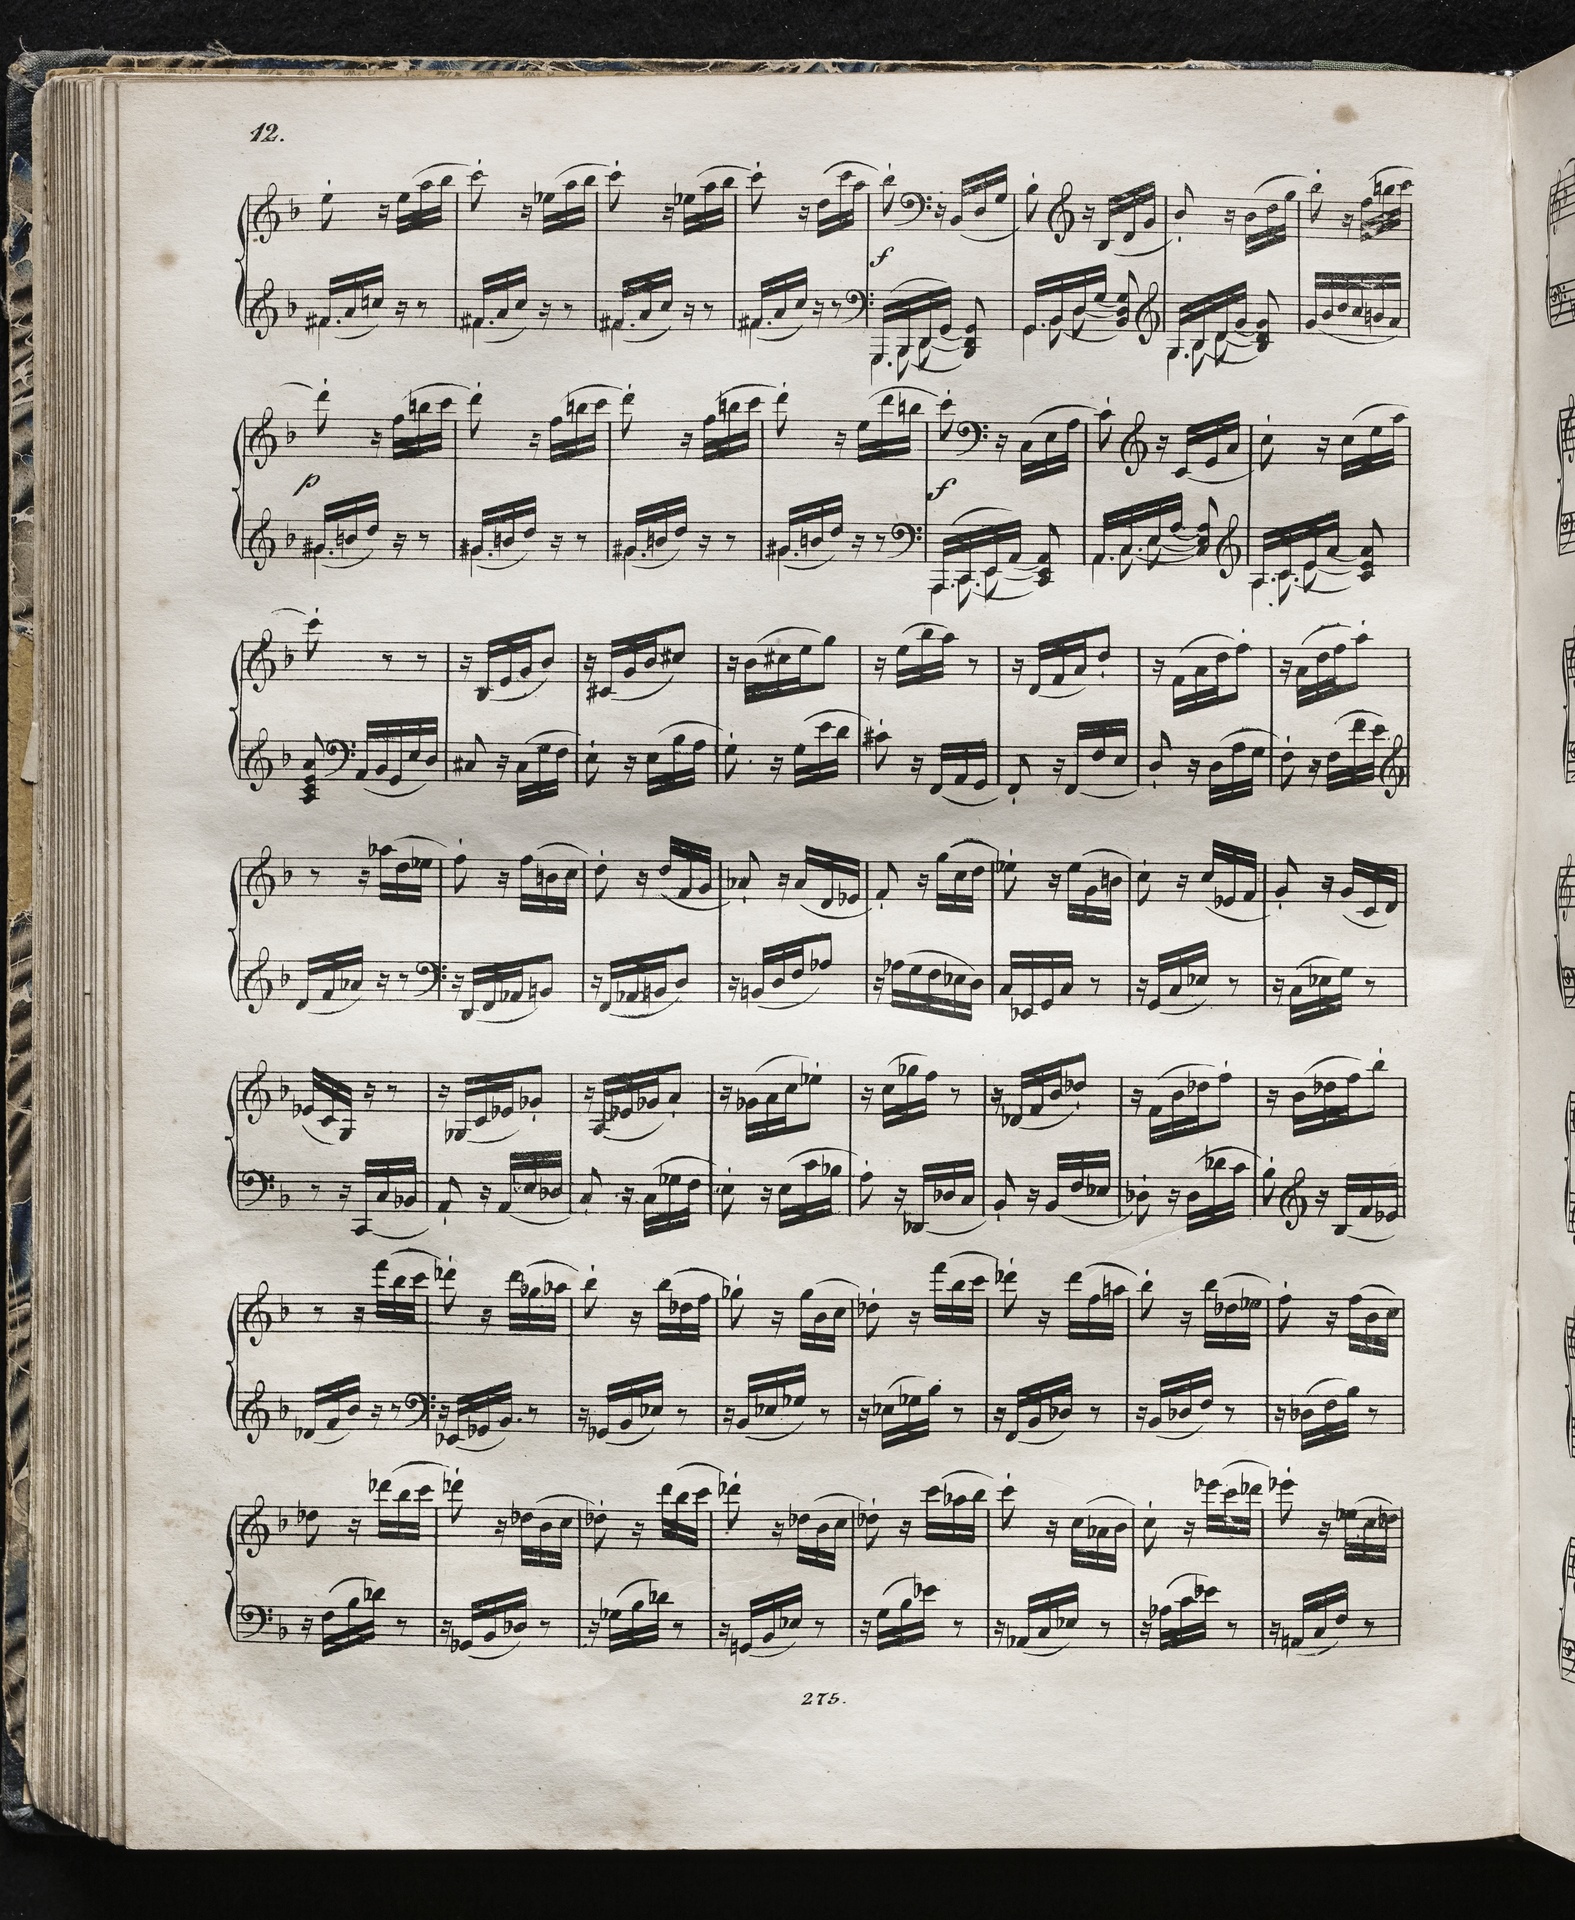 12.
f
p
f
275.